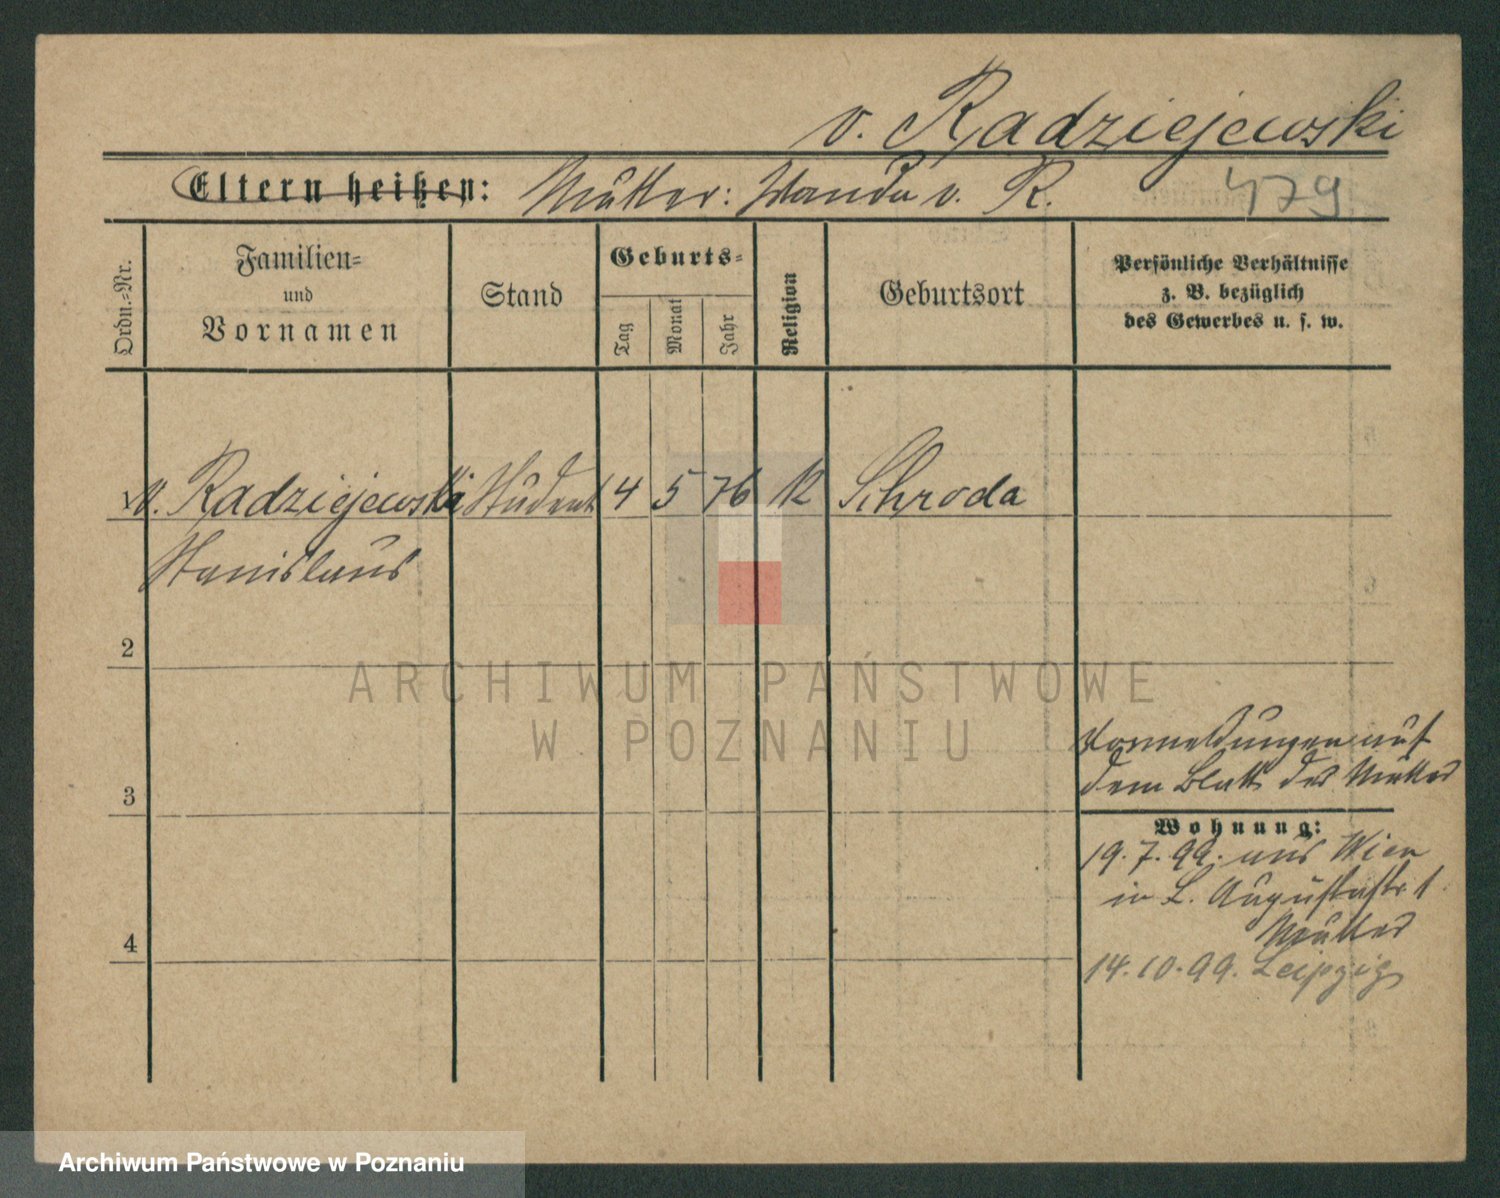 v. Radziejewski
Eltern heißen: Mutter: Wanda v. R. 479
Ordn.-Nr.
Familien-
und
Vornamen
Stand
Geburts-
Tag
Monat
Jahr
Religion
Geburtsort
Persönliche Verhältnisse
z. B. bezüglich
des Gewerbes u. s. w.
1 v. Radziejewski Student 4 5 76 k Schroda
Stanislaus
2
ARCHIWUM PAŃSTWOWE
W POZNANIU
Vormeldungen auf
dem Blatt der Mutter
3
Wohnung:
19.7.99. aus Wien
in L. Augustastr. 1
Mutter
4
14.10.99. Leipzig
Archiwum Państwowe w Poznaniu